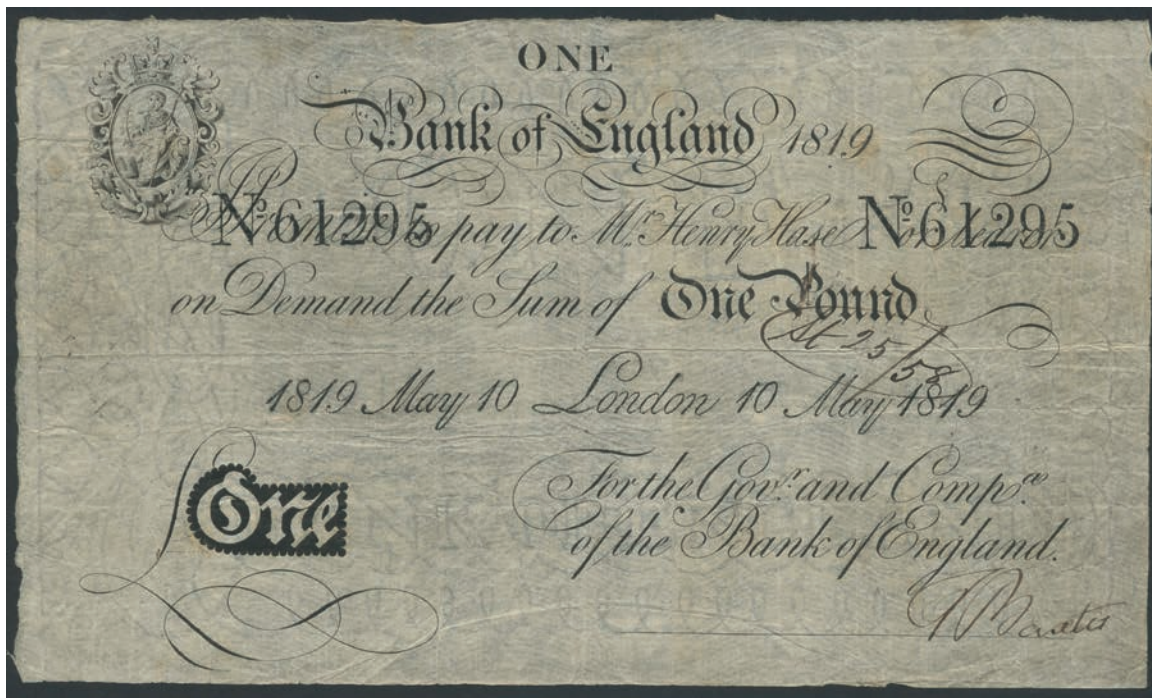 ONE
Bank of England 1819
I Promise to pay to Mr. Henry Hase or Bearer
No. 61295 No. 61295
on Demand the Sum of One Pound
25/58
1819 May 10 London 10 May 1819
For the Govr. and Compa.
of the Bank of England.
£ One